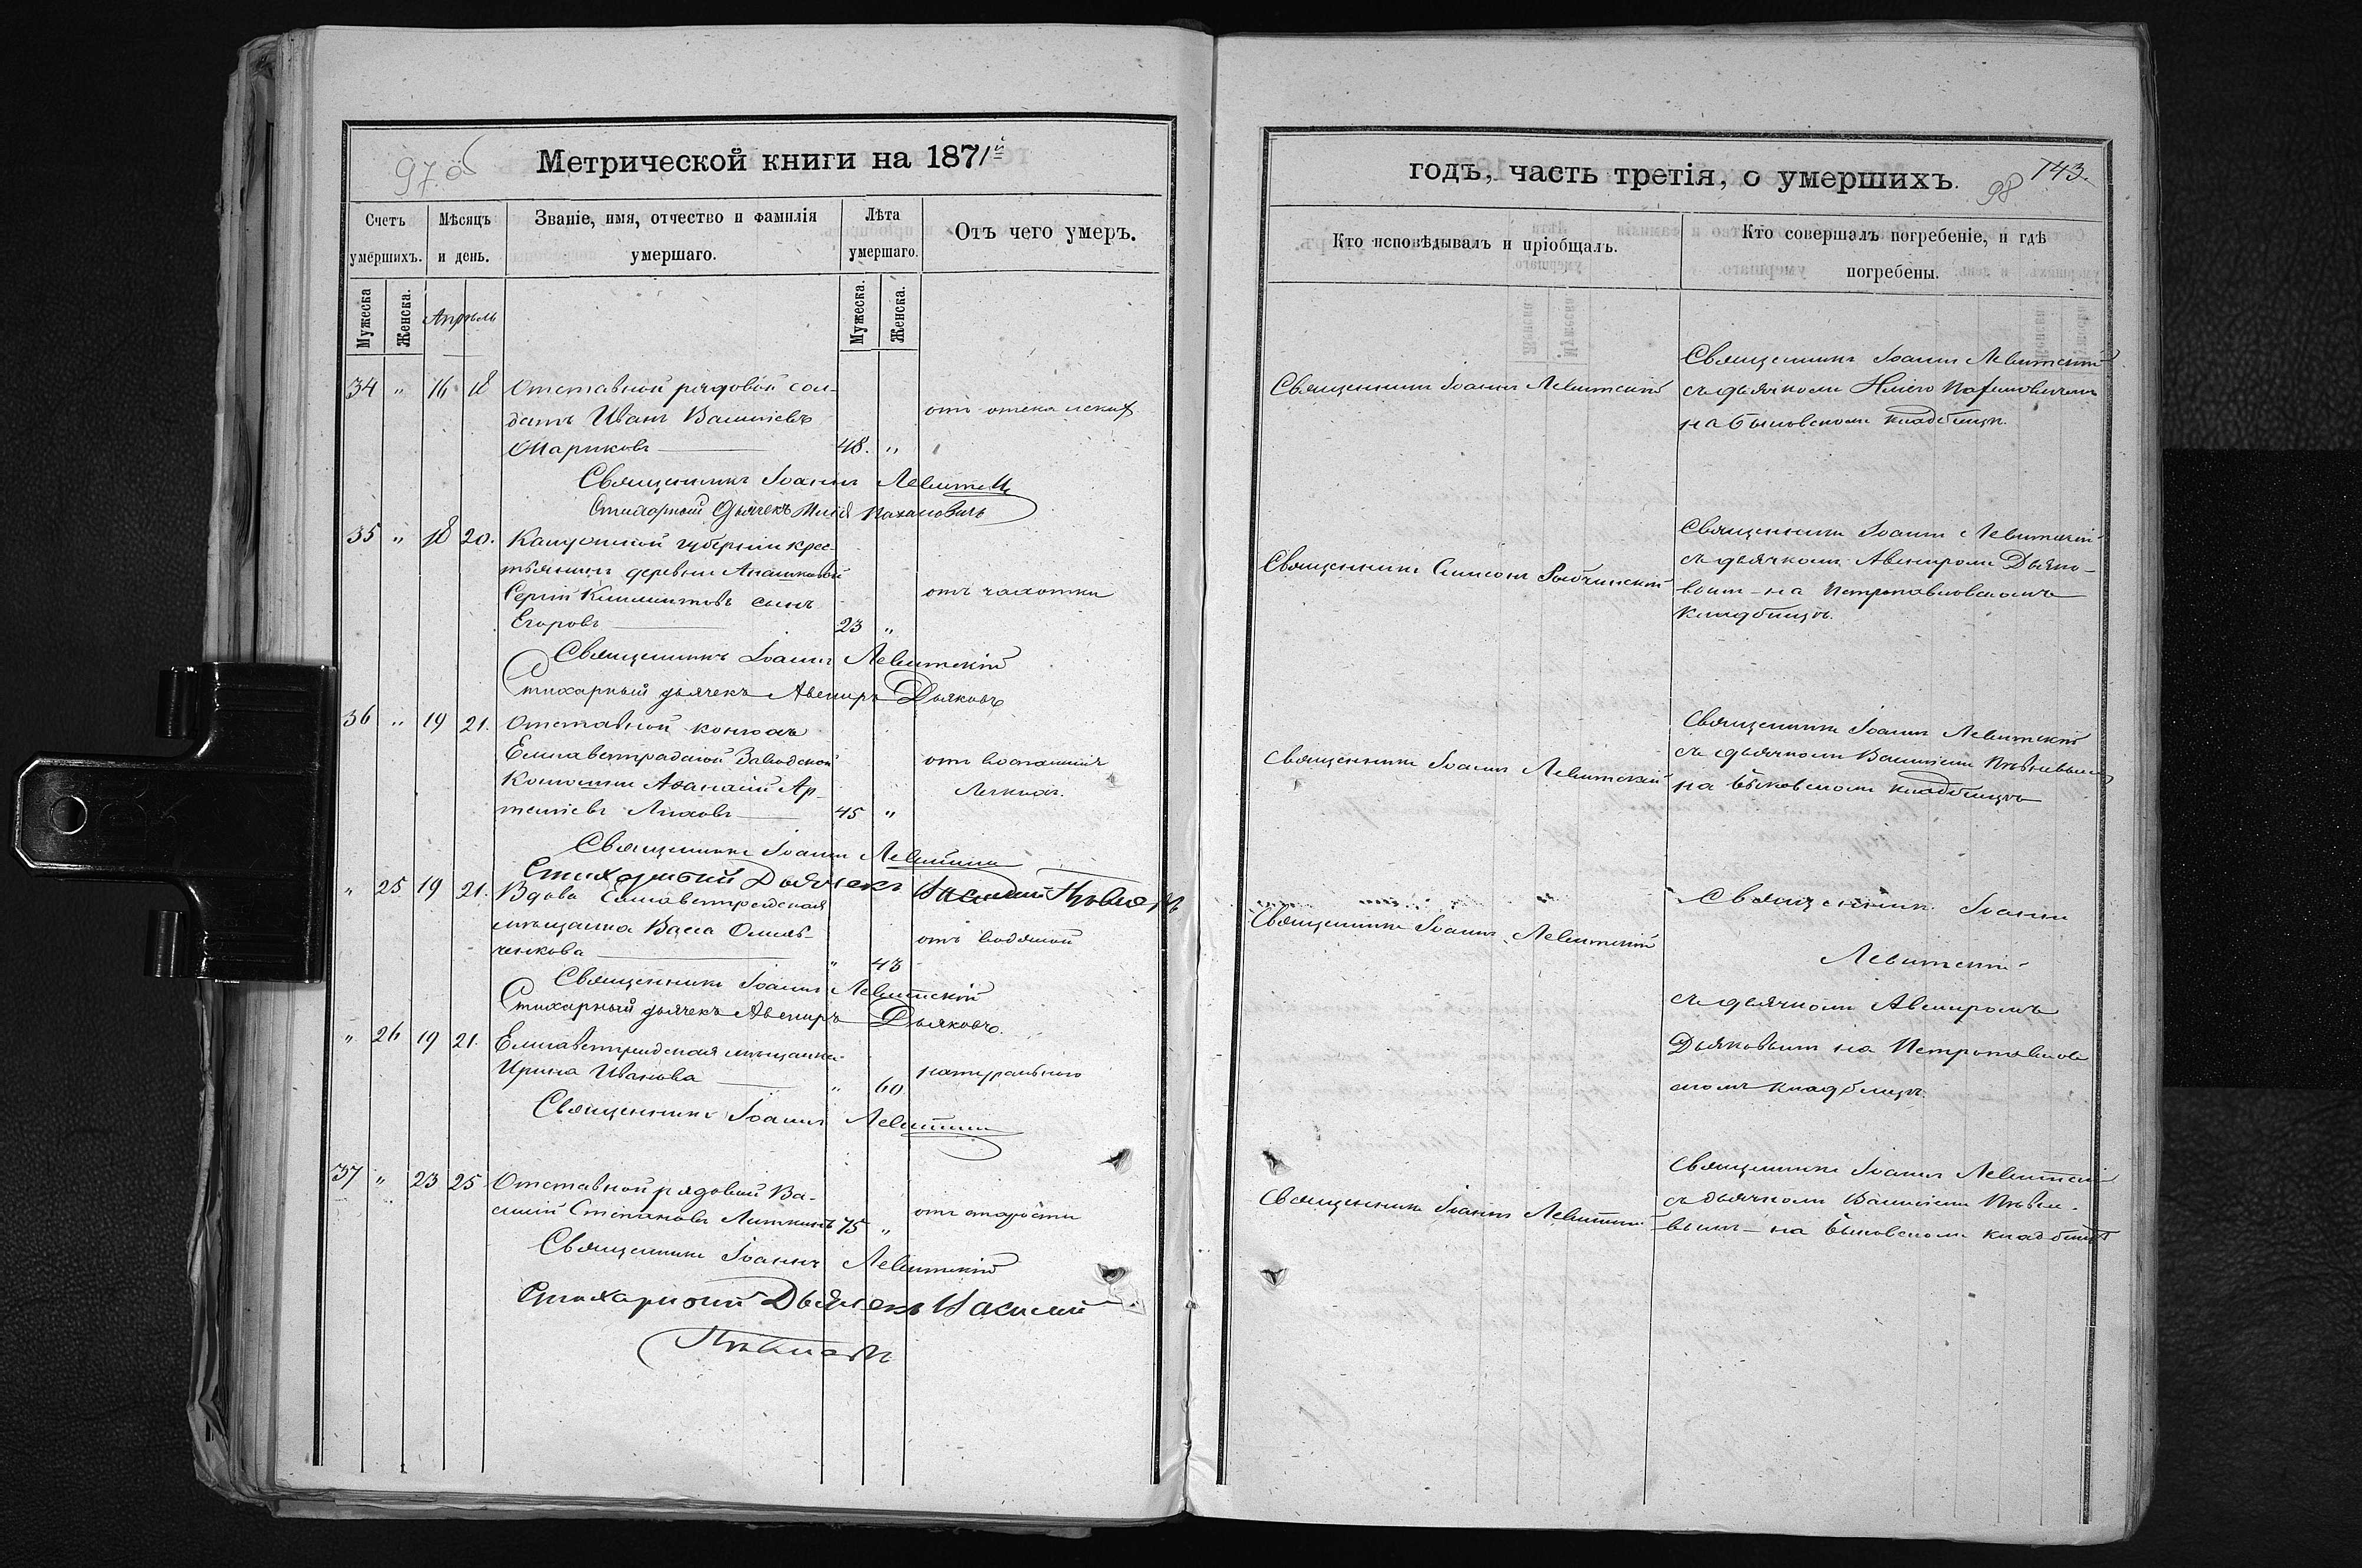 97 об
Метрической книги на 1871й
Счетъ умершихъ.
Мѣсяцъ и день.
Званіе, имя, отчество и фамилія умершаго.
Лѣта умершаго.
Отъ чего умеръ.
Мужеска
Женска.
Апрѣль
Мужеска.
Женска.
34 „ 16 18 Отставной рядовой сол-
датъ Иванъ Василіевъ
Шариковъ 48. „
Священникъ Іоаннъ Левитскій
Стихарный Дьячекъ
35 „ 18 20. Калужской губерніи крес-
тьянинъ деревни Анашкиной
Сергій Климентовъ сынъ отъ чахотки
Егоровъ 23 „
Священникъ Іоаннъ Левитскій
Стихарный дьячекъ Авениръ Дьяковъ
36 „ 19 21. Отставной конюхъ
Елисаветградской Заводской отъ воспаленія
Конюшни Аѳанасій Ар- Легкихъ.
темпіевъ Ляховъ 45 „
Священникъ Іоаннъ Левитскій
Стихарный Дьячекъ Василий
„ 25 19 21. Вдова Елисаветградская
мѣщанка Васса Омель- отъ водяной
ченкова „ 43
Священникъ Іоаннъ Левитскій
Стихарный дьячекъ Авениръ Дьяковъ.
„ 26 19 21. Елисаветградская мѣщанка
Ирина Иванова „ 60 натурально
Священникъ Іоаннъ Левитскій
37 „ 23 25 Отставной рядовой Ва-
силій Степановъ Литкинъ 75 „ отъ старости
Священникъ Іоаннъ Левитскій
Стихарный Дьячекъ Василий
годъ, часть третія, о умершихъ.
98 143.
Кто исповѣдывалъ и пріобщалъ.
Кто совершалъ погребеніе, и гдѣ погребены.
Священникъ Іоаннъ Левитскій
Священникъ Іоаннъ Левитскій
съ дьячкомъ
на Быковскомъ кладбищѣ.
Священникъ Симеонъ
Священникъ Іоаннъ Левитскій
съ дьячкомъ Авениромъ Дьяко-
вымъ на Петропавловскомъ
кладбищѣ.
Священникъ Іоаннъ Левитскій
Священникъ Іоаннъ Левитскій
съ дьячкомъ Василіемъ
на Быковскомъ кладбищѣ
Священникъ Іоаннъ Левитскій
Священникъ Іоаннъ
Левитскій
съ дьячкомъ Авениромъ
Дьяковымъ на Петропавлов
скомъ кладбищѣ.
Священникъ Іоаннъ Левитскій
Священникъ Іоаннъ Левитскій
съ дьячкомъ Василіемъ
вымъ на Быковскомъ кладбищѣ